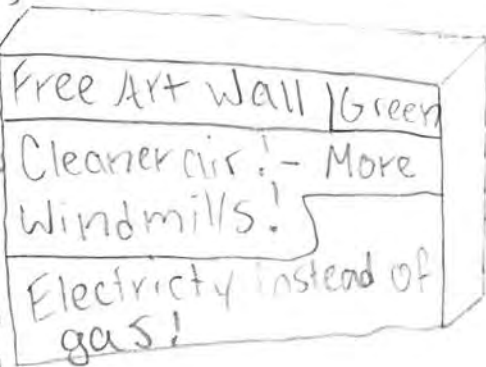 Free Art Wall Green
Cleaner air! - More
Windmills!
Electricty instead of
gas!